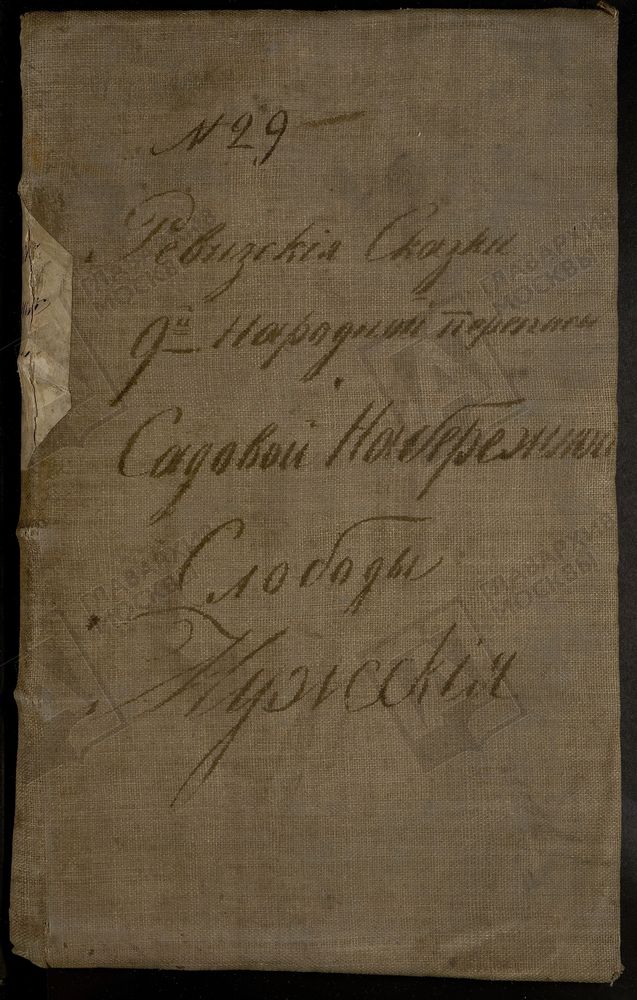 № 29
Ревизскія Сказки
9й Народный переписи
Садовой Набережной
Слободы
Мужескія
ГЛАВАРХИВ
МОСКВЫ
ГЛАВАРХИВ
МОСКВЫ
ГЛАВАРХИВ
МОСКВЫ
ГЛАВАРХИВ
МОСКВЫ